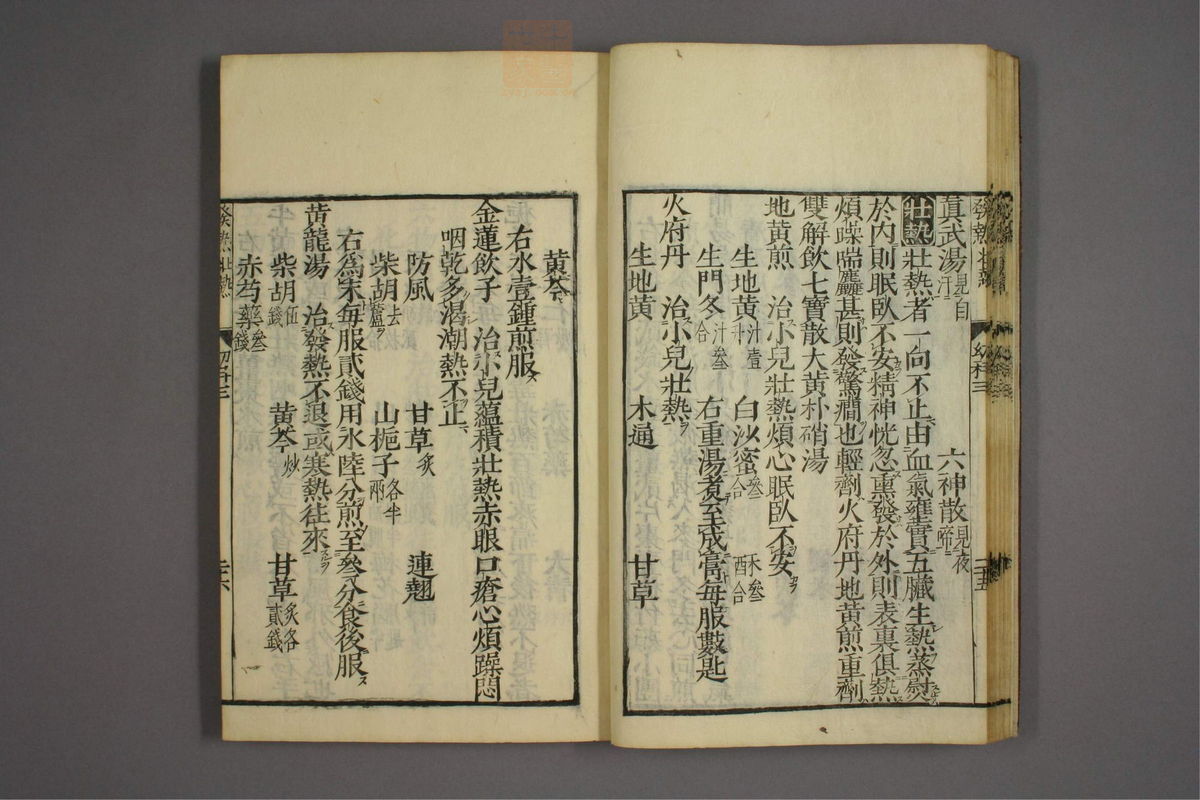 真武湯見自汗　六神散見夜啼
壯熱　壯熱者一向不止由血氣壅實五臟生熱蒸熨
於内則眠臥不安精神恍忽熏發於外則表裏俱熱
煩躁喘麤甚則發驚癇也輕劑火府丹地黄煎重劑
雙解飲七寶散大黄朴硝湯
地黄煎　治小兒壯熱煩心眠臥不安
生地黄汁壹升　白沙蜜叄合　酥叄合
生門冬汁叄合　右重湯煮至成膏每服數匙
火府丹　治小兒壯熱
生地黄　木通　甘草
黄芩
右水壹鍾煎服
金蓮飲子　治小兒蘊積壯熱赤眼口瘡心煩躁悶
咽乾多渴潮熱不止
防風　甘草炙　連翹
柴胡去蘆　山梔子各半兩
右爲末每服貳錢用水陸分煎至叄分食後服
黄龍湯　治發熱不退或寒熱往來
柴胡伍錢　黄芩炒　甘草炙各貳錢
赤芍藥叄錢
發熱壯熱　幼科三